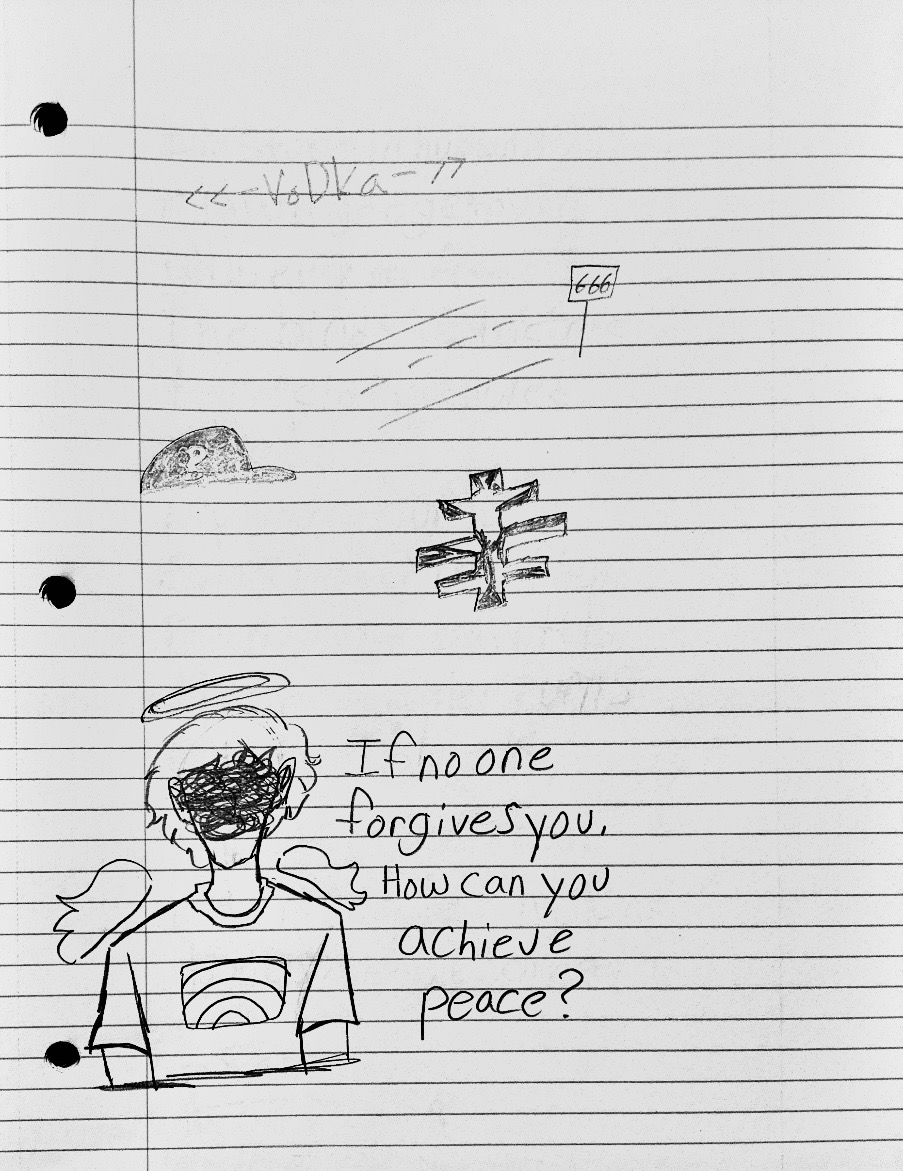 <<-VoDka->>
666
P
If no one
forgives you.
How can you
achieve
peace?